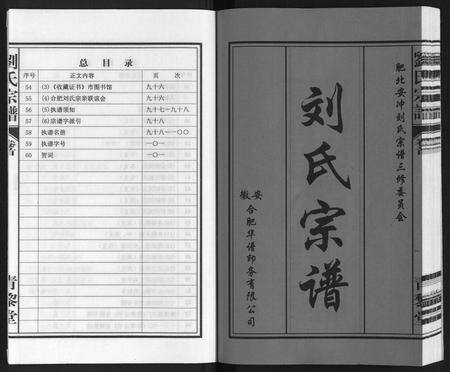 刘氏宗谱
卷首
青黎堂
总目录
序号 正文内容 页次
54 (3)《收藏证书》市图书馆 九十六
55 (4)合肥刘氏宗亲联谊会 九十六
56 (5)执谱须知 九十七一九十八
57 (6)宗谱字派引 九十八
58 执谱名册 九十八一一〇〇
59 执谱字号 一〇一
60 贺词 一〇一
肥北安冲刘氏宗谱三修委员会
刘氏宗谱
安徽合肥华谱印务有限公司
青黎堂